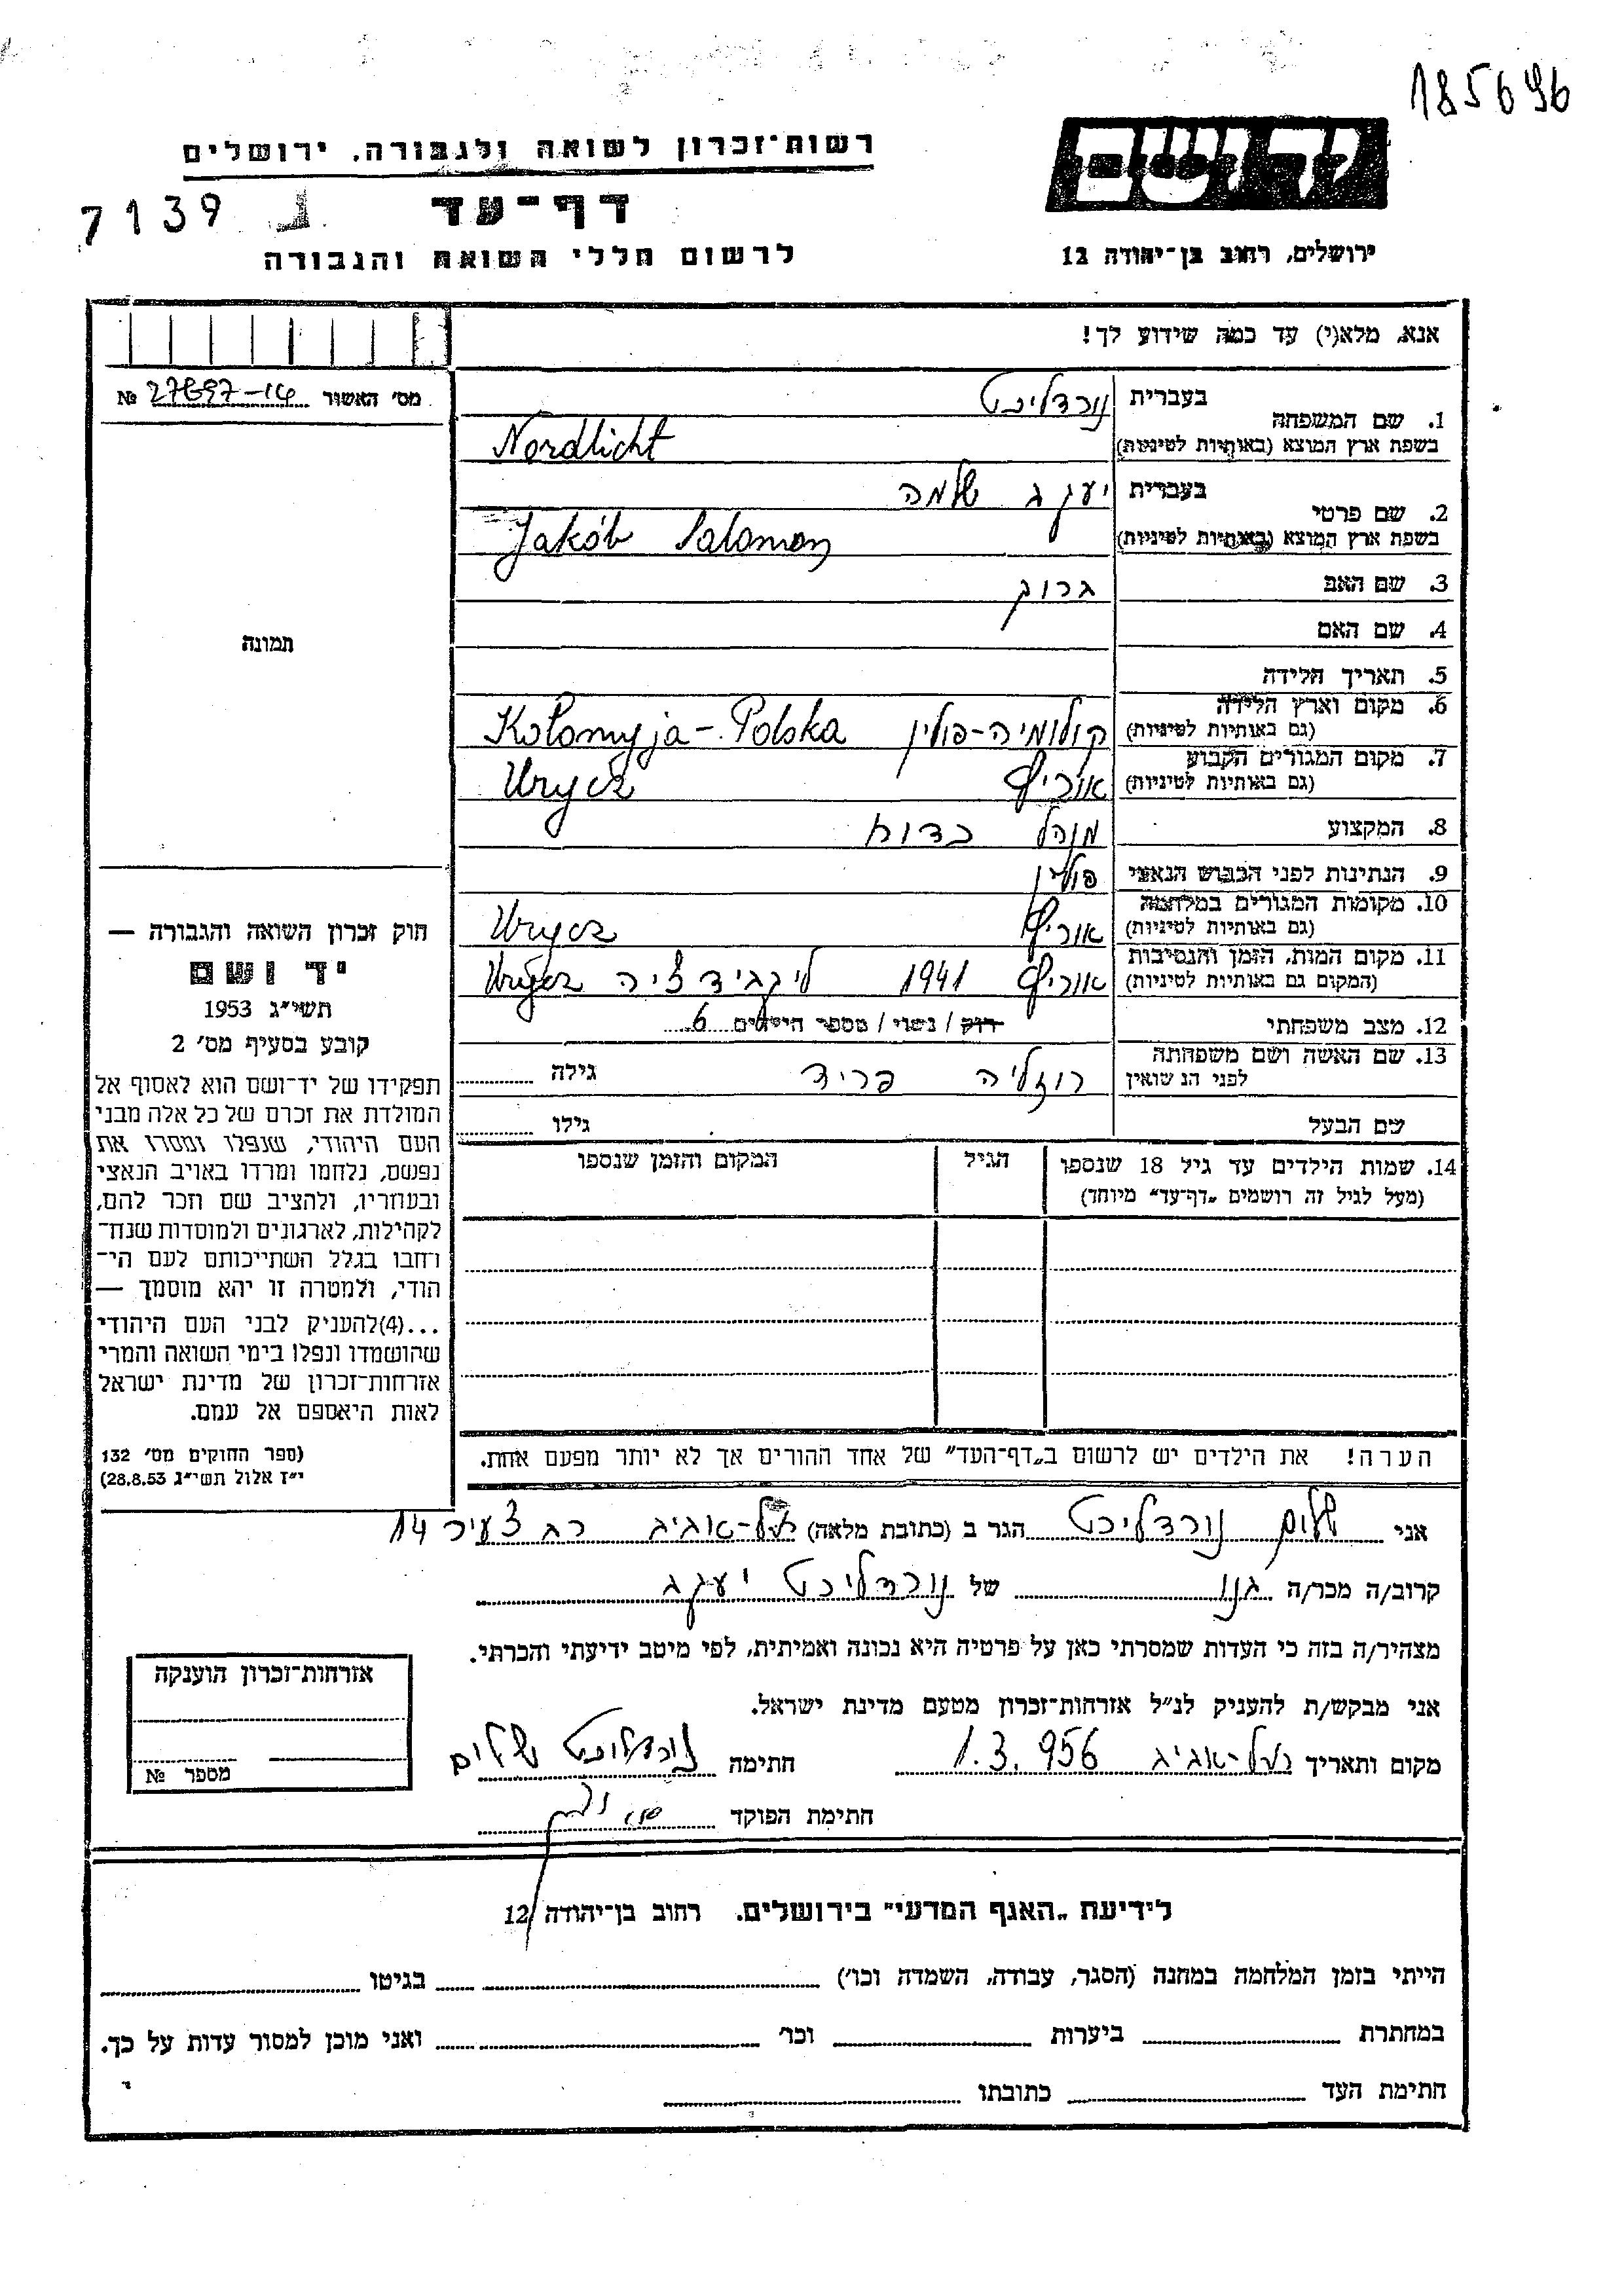 185696
יד ושם
רשות־זכרון לשואה ולגבורה, ירושלים
דף־עד
7139
ירושלים, רחוב בן־יהודה 12
לרשום חללי השואה והגבורה
אנא, מלא(י) עד כמה שידוע לך!
מס׳ האשור № 27697-14
1. שם המשפחה בעברית נורדליכט
בשפת ארץ המוצא (באותיות לטיניות) Nordlicht
2. שם פרטי בעברית יעקב שלמה
בשפת ארץ המוצא (באותיות לטיניות) Jakób Salomon
3. שם האב ברוך
4. שם האם
תמונה
5. תאריך הלידה
6. מקום וארץ הלידה (גם באותיות לטיניות) קולומיה-פולין Kołomyja-Polska
7. מקום המגורים הקבוע (גם באותיות לטיניות) אוריץ Urycz
8. המקצוע מנהל
9. הנתינות לפני הכבוש הנאצי פולין
10. מקומות המגורים במלחמה (גם באותיות לטיניות) אוריץ Urycz
11. מקום המות, הזמן והנסיבות (המקום גם באותיות לטיניות) אוריץ 1941 ליקבידציה Urycz
12. מצב משפחתי רוק / נשוי / מספר הילדים 6
13. שם האשה ושם משפחתה לפני הנשואין רוזליה פריד גילה
שם הבעל גילו
14. שמות הילדים עד גיל 18 שנספו הגיל המקום והזמן שנספו
(מעל לגיל זה רושמים „דף־עד״ מיוחד)
הערה! את הילדים יש לרשום ב„דף־העד״ של אחד ההורים אך לא יותר מפעם אחת.
חוק זכרון השואה והגבורה —
יד ושם
תשי״ג 1953
קובע בסעיף מס׳ 2
תפקידו של יד־ושם הוא לאסוף אל
המולדת את זכרם של כל אלה מבני
העם היהודי, שנפלו ומסרו את
נפשם, נלחמו ומרדו באויב הנאצי
ובעוזריו, ולהציב שם וזכר להם,
לקהילות, לארגונים ולמוסדות שנח־
רחבו בגלל השתייכותם לעם הי־
הודי, ולמטרה זו יהא מוסמך —
...(4)להעניק לבני העם היהודי
שהושמדו ונפלו בימי השואה והמרי
אזרחות־זכרון של מדינת ישראל
לאות היאספם אל עמם.
(ספר החוקים מס׳ 132
י״ז אלול תשי״ג 28.8.53)
אני שלום נורדליכט הגר ב (כתובת מלאה) תל-אביב רב צעיר 14
קרוב/ה מכר/ה בנו של נורדליכט יעקב
מצהיר/ה בזה כי העדות שמסרתי כאן על פרטיה היא נכונה ואמיתית, לפי מיטב ידיעתי והכרתי.
אני מבקש/ת להעניק לנ״ל אזרחות־זכרון מטעם מדינת ישראל.
מקום ותאריך תל-אביב 1.3.956 חתימה נורדליכט שלום
חתימת הפוקד
אזרחות־זכרון הוענקה
מספר №
לידיעת „האגף המדעי״ בירושלים. רחוב בן־יהודה 12
הייתי בזמן המלחמה במחנה (הסגר, עבודה, השמדה וכו׳) בגיטו
במחתרת ביערות וכו׳ ואני מוכן למסור עדות על כך.
חתימת העד כתובתו